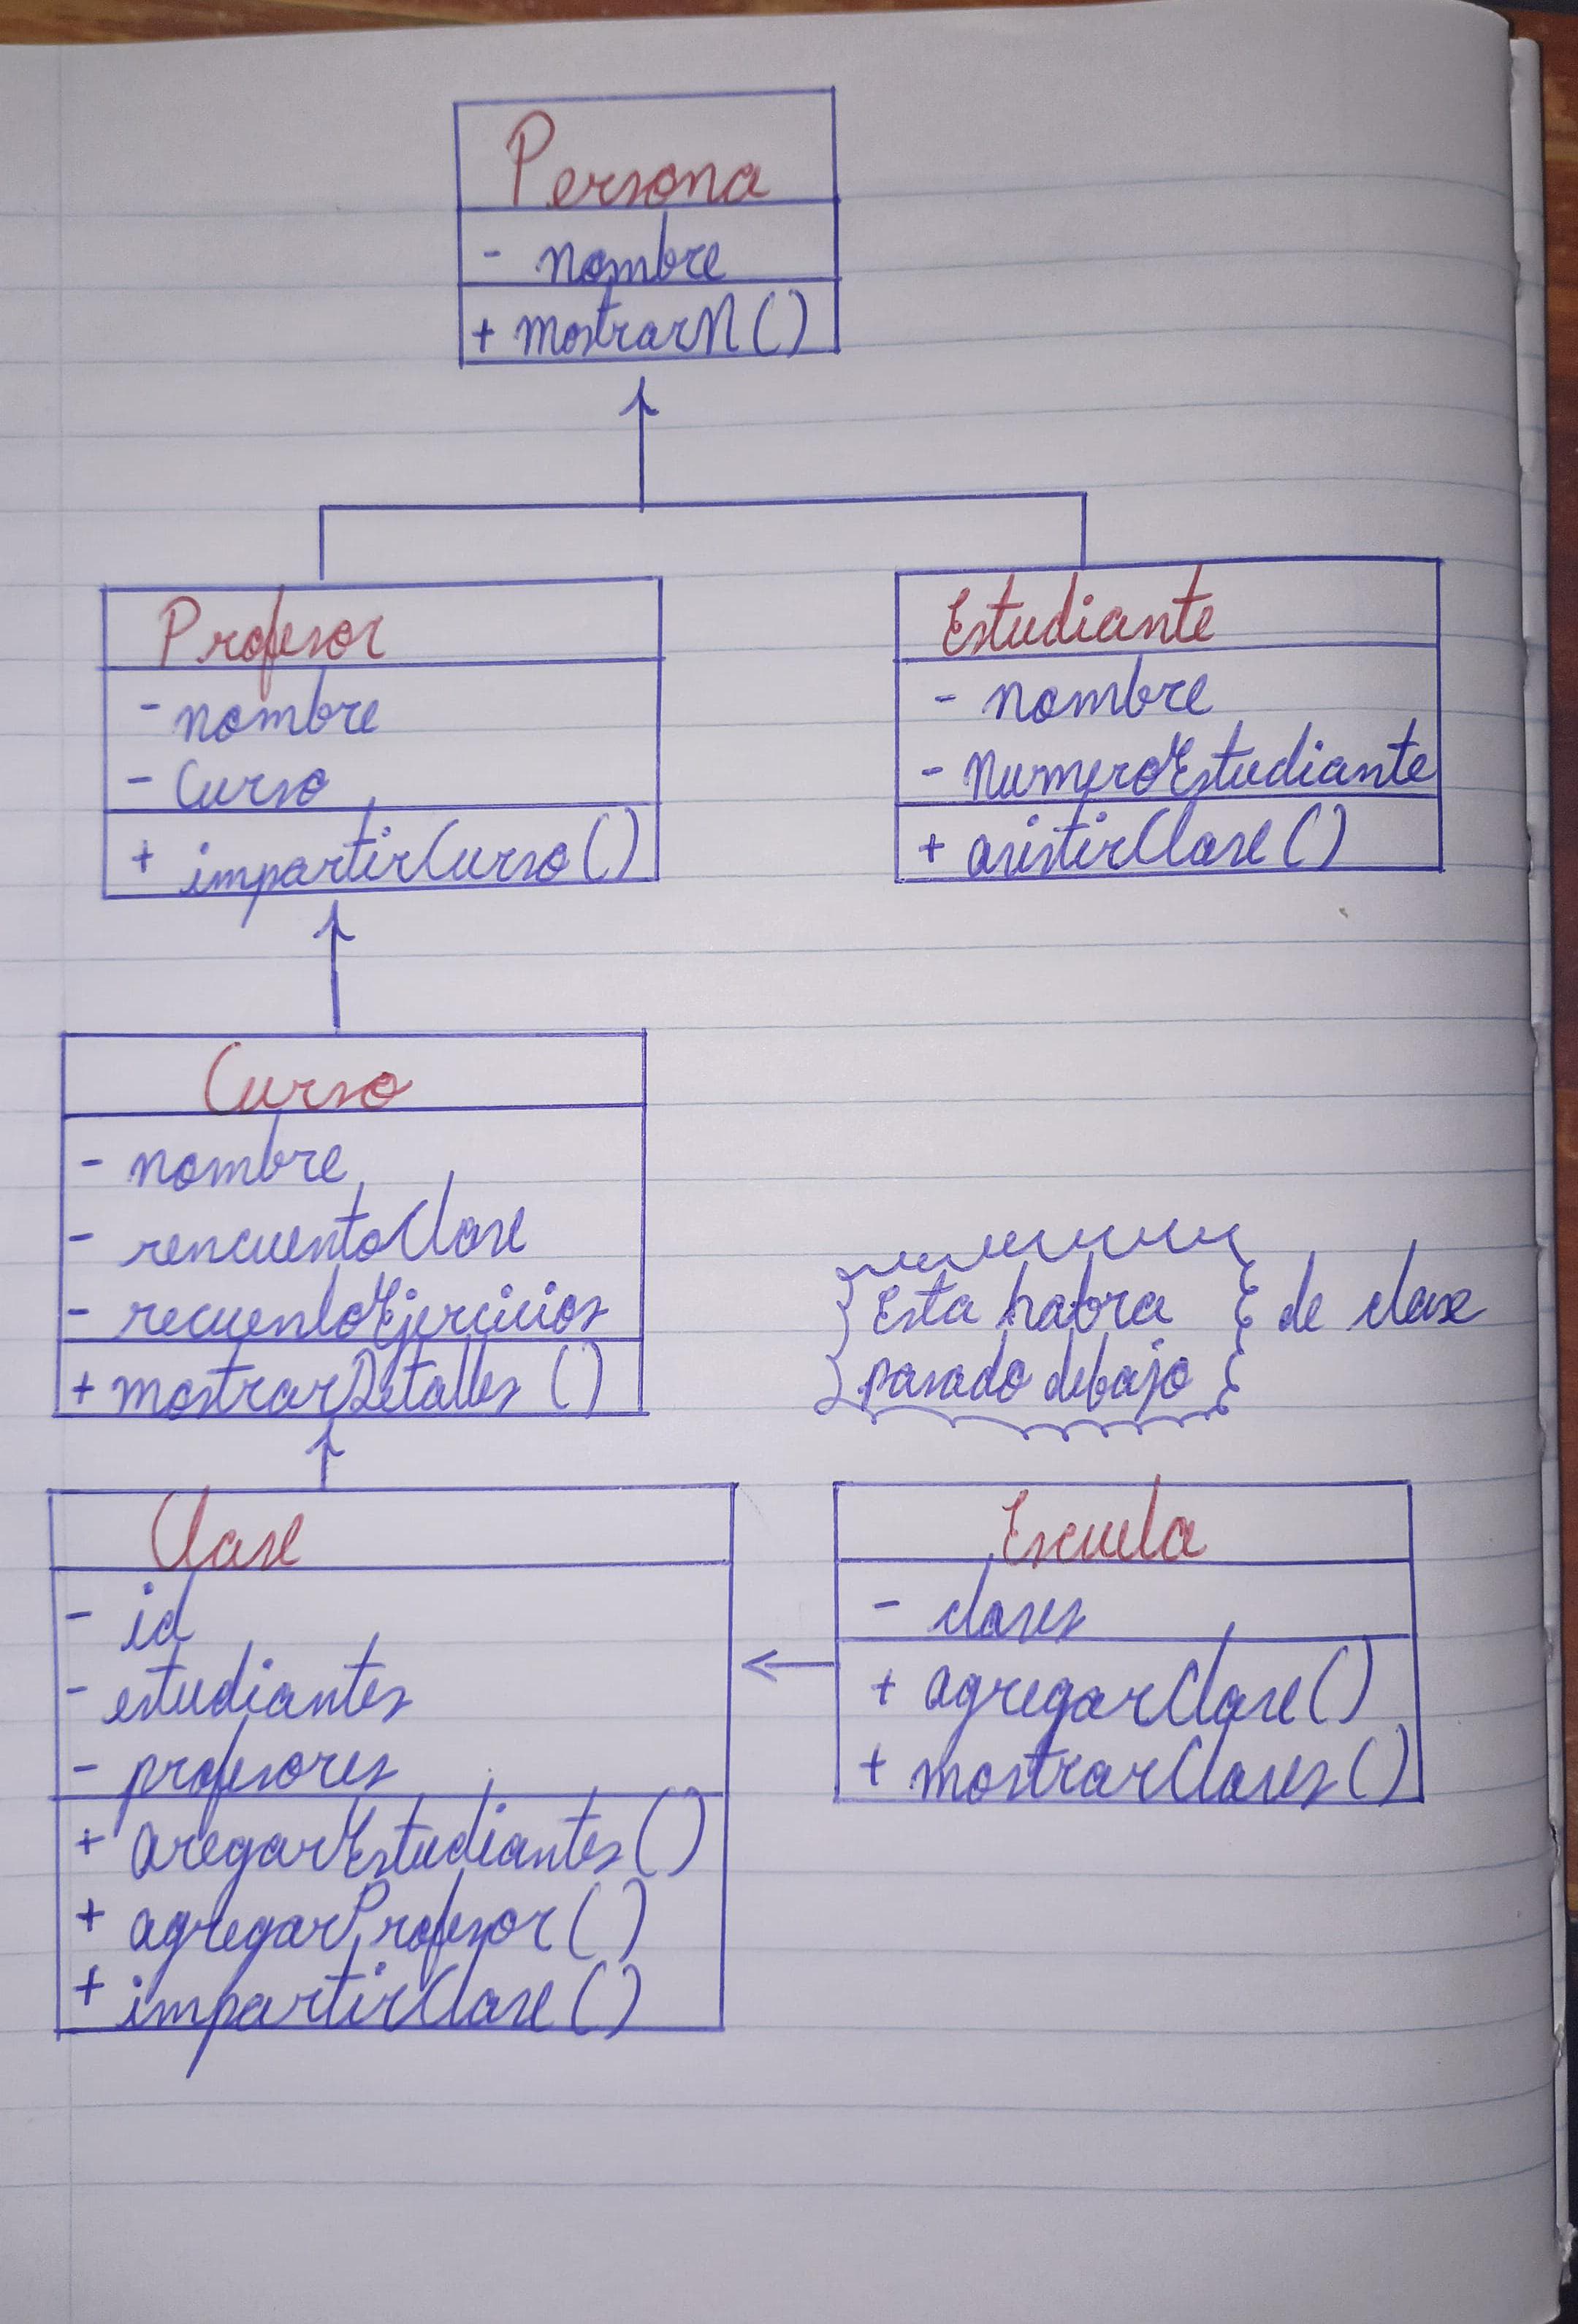 Persona
- nombre
+ mostrarN()
Profesor
- nombre
- Curso
+ impartirCurso()
Estudiante
- nombre
- NumeroEstudiante
+ asistirClase()
Curso
- nombre
- rencuentoClase
- recuentoEjercicios
+ mostrarDetalles ()
Esta habra de clase
pasado debajo
Clase
- id
- estudiantes
- profesores
+ aregarEstudiantes()
+ agregarProfesor()
+ impartirClase()
Escuela
- clases
+ agregarClase()
+ mostrarClases()